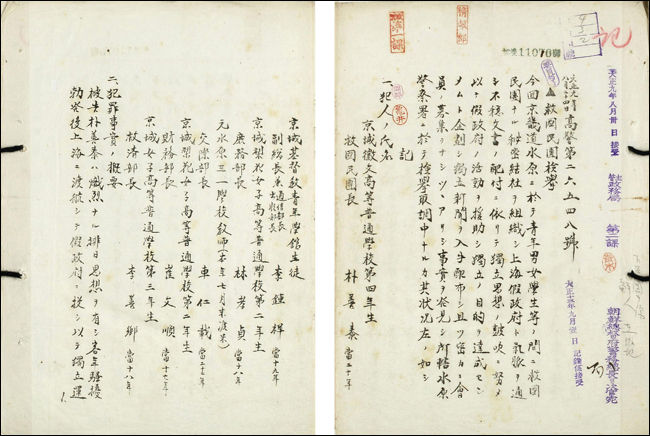 高警第二六五四八號
▲救國民團檢擧
今回京畿道水原ニ於テ青年男女學生等ノ間ニ救國
民團ナル秘密結社ヲ組織シ上海假政府ト氣脈ヲ通
シ不穩文書ノ配付ニ依リテ獨立思想ノ鼓吹ニ努メ
以テ假政府ノ活動ヲ援助シ獨立ノ目的ヲ達成セン
コトヲ企劃シ獨立新聞ヲ入手配布シ且ツ窃カニ會
員ノ募集ヲナシツヽアリシ事實ヲ發見シ所轄水原
警察署ニ於テ檢擧取調中ナルカ其狀況左ノ如シ
記
一、犯人ノ氏名
京城徽文高等普通學校第四年生
救國民團長 朴善泰 當二十年
京城基督敎青年學館生徒
副總長兼 李鍾祥 當十九年
京城梨花女子高等普通學校第二年生
庶務部長 林孝貞 當十八年
元水原三一學校敎師
交際部長 車仁載
京城梨花女子高等普通學校第二年生
財務部長 崔文順 當十七年
京城女子高等普通學校第三年生
救濟部長 李善卿 當十八年
二、犯罪事實ノ概要
被告朴善泰ハ熾烈ナル排日思想ヲ有シ客年騷擾
勃發後上海ニ渡航シテ假政府ニ投シ以テ獨立運
大正九年八月卅日接受
第二課
11076